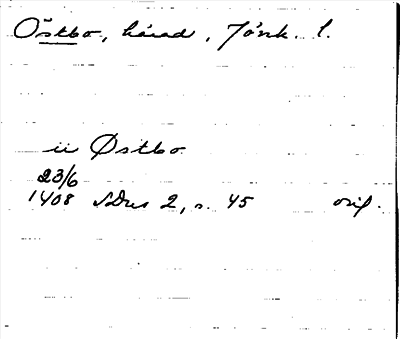 Östbo, härad, Jönk. l.
ii Østbo
23/6
1408 SDns 2, s. 45 orig.